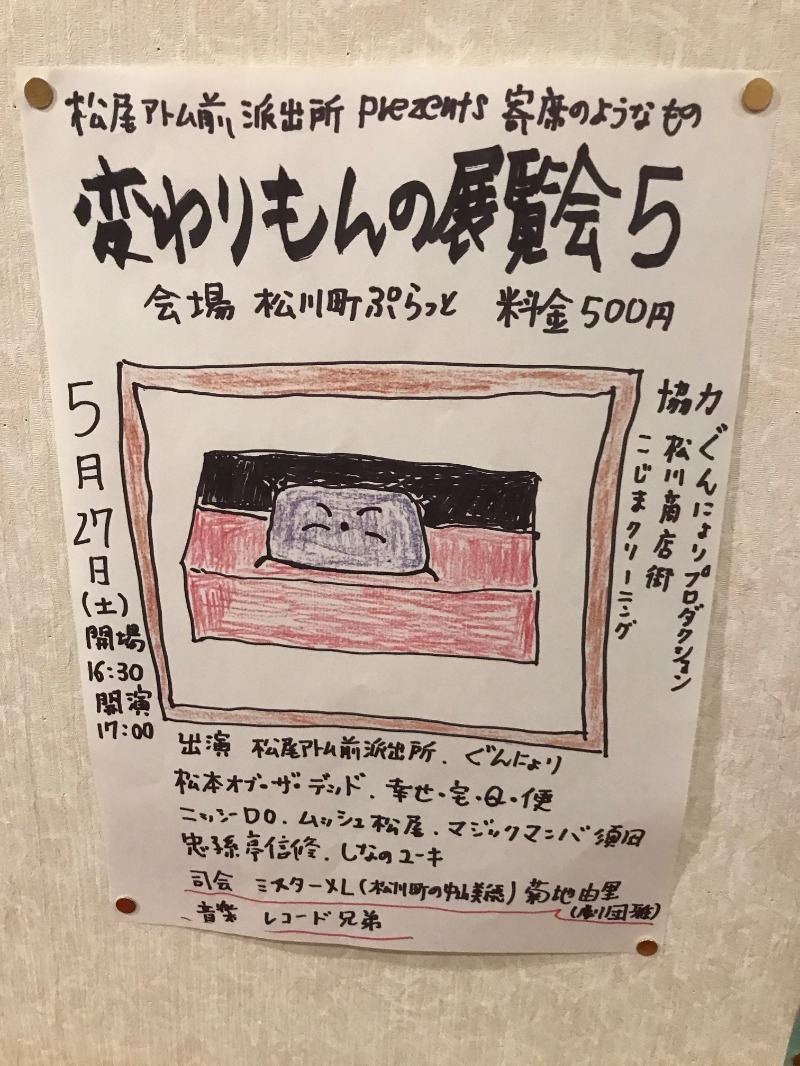 松尾アトム前派出所 prezents 寄席のようなもの
変わりもんの展覧会5
会場 松川町ぷらっと 料金500円
5月27日(土)
開場
16:30
開演
17:00
協力 ぐんにょりプロダクション
松川商店街
こじまクリーニング
出演 松尾アトム前派出所、ぐんにょり
松本オブ・ザ・デッド、幸せ・宅・Q・便
ニッシーDO、ムッシュ松尾、マジックマンバ須田
忠孫亭信修、しなのユーキ
司会 ミスターメL(松川町の中山美穂)菊地由里
(劇団雅)
音楽 レコード兄弟